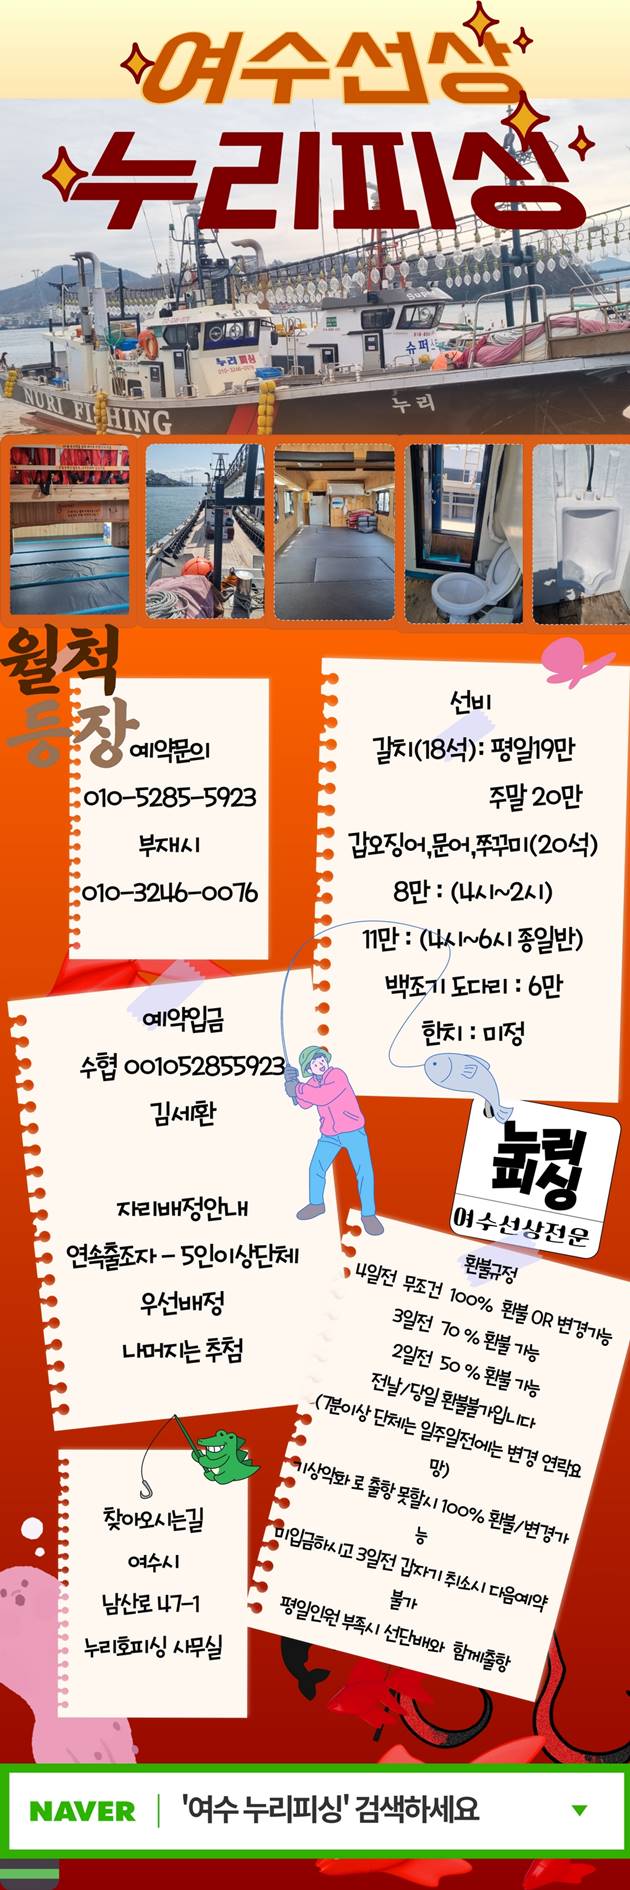 여수선상
누리피싱
누리피싱
슈퍼
NURI FISHING
누리
월척
등장
예약문의
010-5285-5923
부재시
010-3246-0076
선비
갈치(18석): 평일19만
주말 20만
갑오징어,문어,쭈꾸미(20석)
8만 : (4시~2시)
11만 : (4시~6시 종일반)
백조기 도다리 : 6만
한치 : 미정
예약입금
수협 001052855923
김세환
자리배정안내
연속출조자 - 5인이상단체
우선배정
나머지는 추첨
누리
피싱
여수선상전문
환불규정
4일전 무조건 100% 환불 OR 변경가능
3일전 70 % 환불 가능
2일전 50 % 환불 가능
전날/당일 환불불가입니다
(7분이상 단체는 일주일전에는 변경 연락요
망)
기상악화 로 출항 못할시 100% 환불/변경가
능
미입금하시고 3일전 갑자기 취소시 다음예약
불가
평일인원 부족시 선단배와 함께출항
찾아오시는길
여수시
남산로 47-1
누리호피싱 사무실
NAVER
'여수 누리피싱' 검색하세요